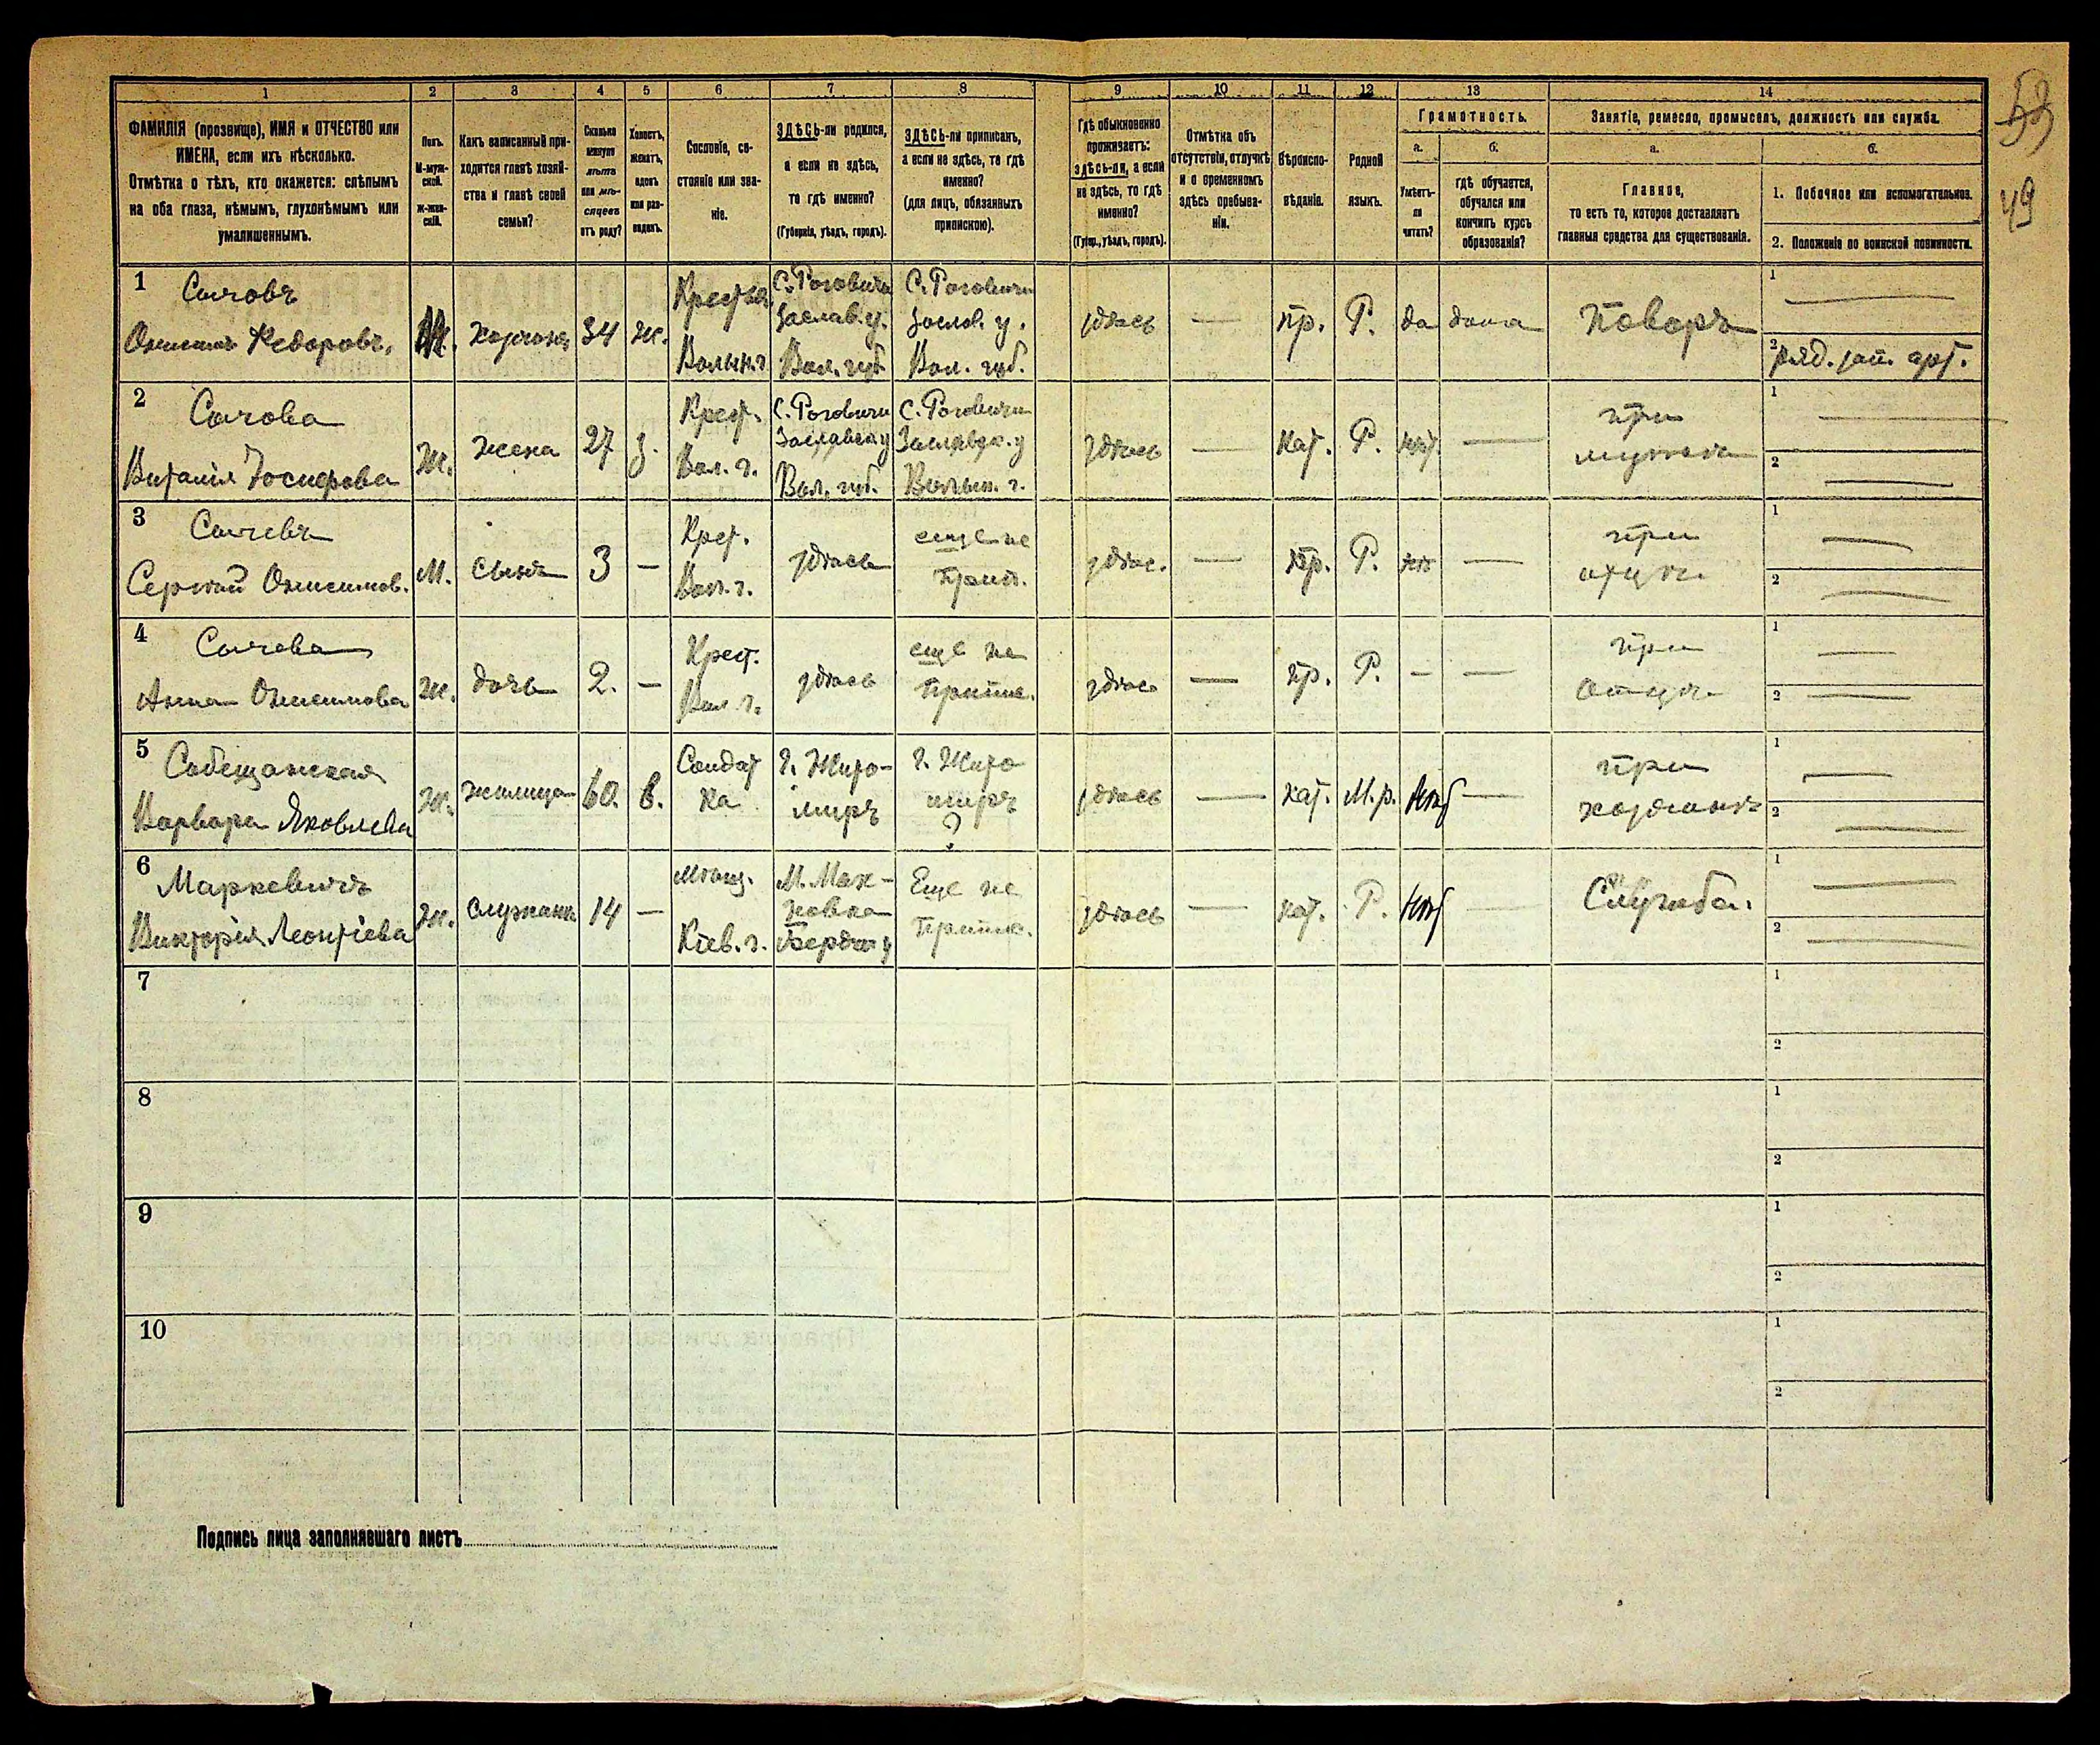 53
49
1
2
3
4
5
6
7
8
9
10
11
12
13
14
ФАМИЛІЯ (прозвище), ИМЯ и ОТЧЕСТВО или
ИМЕНА, если ихъ нѣсколько.
Отмѣтка о тѣхъ, кто окажется: слѣпымъ
на оба глаза, нѣмымъ, глухонѣмымъ или
умалишеннымъ.
Полъ.
М-муж-
ской.
Ж-жен-
скій.
Какъ записанный при-
ходится главѣ хозяй-
ства и главѣ своей
семьи?
Сколько
минуло
лѣтъ
или мѣ-
сяцевъ
отъ роду?
Холостъ,
женатъ,
вдовъ
или раз-
веденъ.
Сословіе, со-
стояніе или зва-
ніе.
ЗДѢСЬ-ли родился,
а если не здѣсь,
то гдѣ именно?
(Губернія, уѣздъ, городъ).
ЗДѢСЬ-ли приписанъ,
а если не здѣсь, то гдѣ
именно?
(для лицъ, обязанныхъ
припискою).
Гдѣ обыкновенно
проживаетъ:
здѣсь-ли, а если
не здѣсь, то гдѣ
именно?
(Губер., уѣздъ, городъ).
Отмѣтка объ
отсутствіи, отлучкѣ
и о временномъ
здѣсь пребыва-
ніи.
Вѣроиспо-
вѣданіе.
Родной
языкъ.
Грамотность.
а.
Умѣетъ-
ли
читать?
б.
гдѣ обучается,
обучался или
кончилъ курсъ
образованія?
Занятіе, ремесло, промыселъ, должность или служба.
а.
Главное,
то есть то, которое доставляетъ
главныя средства для существованія.
б.
1. Побочное или вспомогательное.
2. Положеніе по воинской повинности.
1
Сычовъ
Онисимъ Федоровъ,
М.
хозяинъ
34
ж.
Крестьян.
Волын. г.
С. Роговичи
Заслав. у.
Вол. губ.
С. Роговичи
Заслав. у.
Вол. губ.
здѣсь
—
пр.
Р.
да
дома
Поваръ
1
2
ряд. зап. арт.
2
Сычова
Виталія Іосифова
Ж.
жена
27
з.
Крест.
Вол. г.
С. Роговичи
Заславск. у
Вол. губ.
С. Роговичи
Заславск. у
Волын. г.
здѣсь
—
кат.
Р.
нѣт
—
при
мужѣ
1
2
3
Сычевъ
Сергѣй Онисимов.
М.
сынъ
3
—
Крест.
Вол. г.
здѣсь
еще не
прип.
здѣс.
—
пр.
Р.
нѣт
—
при
отцѣ
1
2
4
Сычева
Анна Онисимова
Ж.
дочь
2.
—
Крест.
Вол. г.
здѣсь
еще не
припис.
здѣсь
—
пр.
Р.
—
—
при
отцѣ
1
2
5
Собещанская
Варвара Яковлева
Ж.
жилица
60.
в.
Солдат
ка
г. Жито-
миръ
г. Жито
миръ
?
здѣсь
—
кат.
М.р.
Нѣт
—
при
хозяинѣ
1
2
6
Маркевичъ
Викторія Леонтіева
Ж.
служанка
14
—
мѣщ.
Кіев. г.
М. Мах-
новка
Бердич. у
Еще не
припис.
здѣсь
—
кат.
Р.
Нѣт
—
Служба.
1
2
7
1
2
8
1
2
9
1
2
10
1
2
Подпись лица заполнявшаго листъ